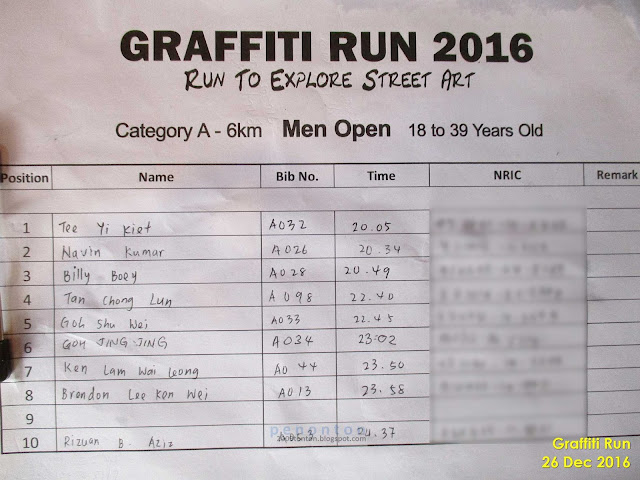 GRAFFITI RUN 2016
RUN TO EXPLORE STREET ART
Category A - 6km Men Open 18 to 39 Years Old
Position Name Bib No. Time NRIC Remark
1 Tee Yi Kiet A032 20.05
2 Navin Kumar A026 20.34
3 Billy Boey A028 20.49
4 Tan Chong Lun A098 22.40
5 Goh Shu Wei A033 22.45
6 GOH JING JING A034 23:02
7 Ken Lam Wai Leong A044 23.50
8 Brandon Lee Ken Wei A013 23.58
9
penonton
10 Rizuan B. Aziz 24.37
Graffiti Run
26 Dec 2016